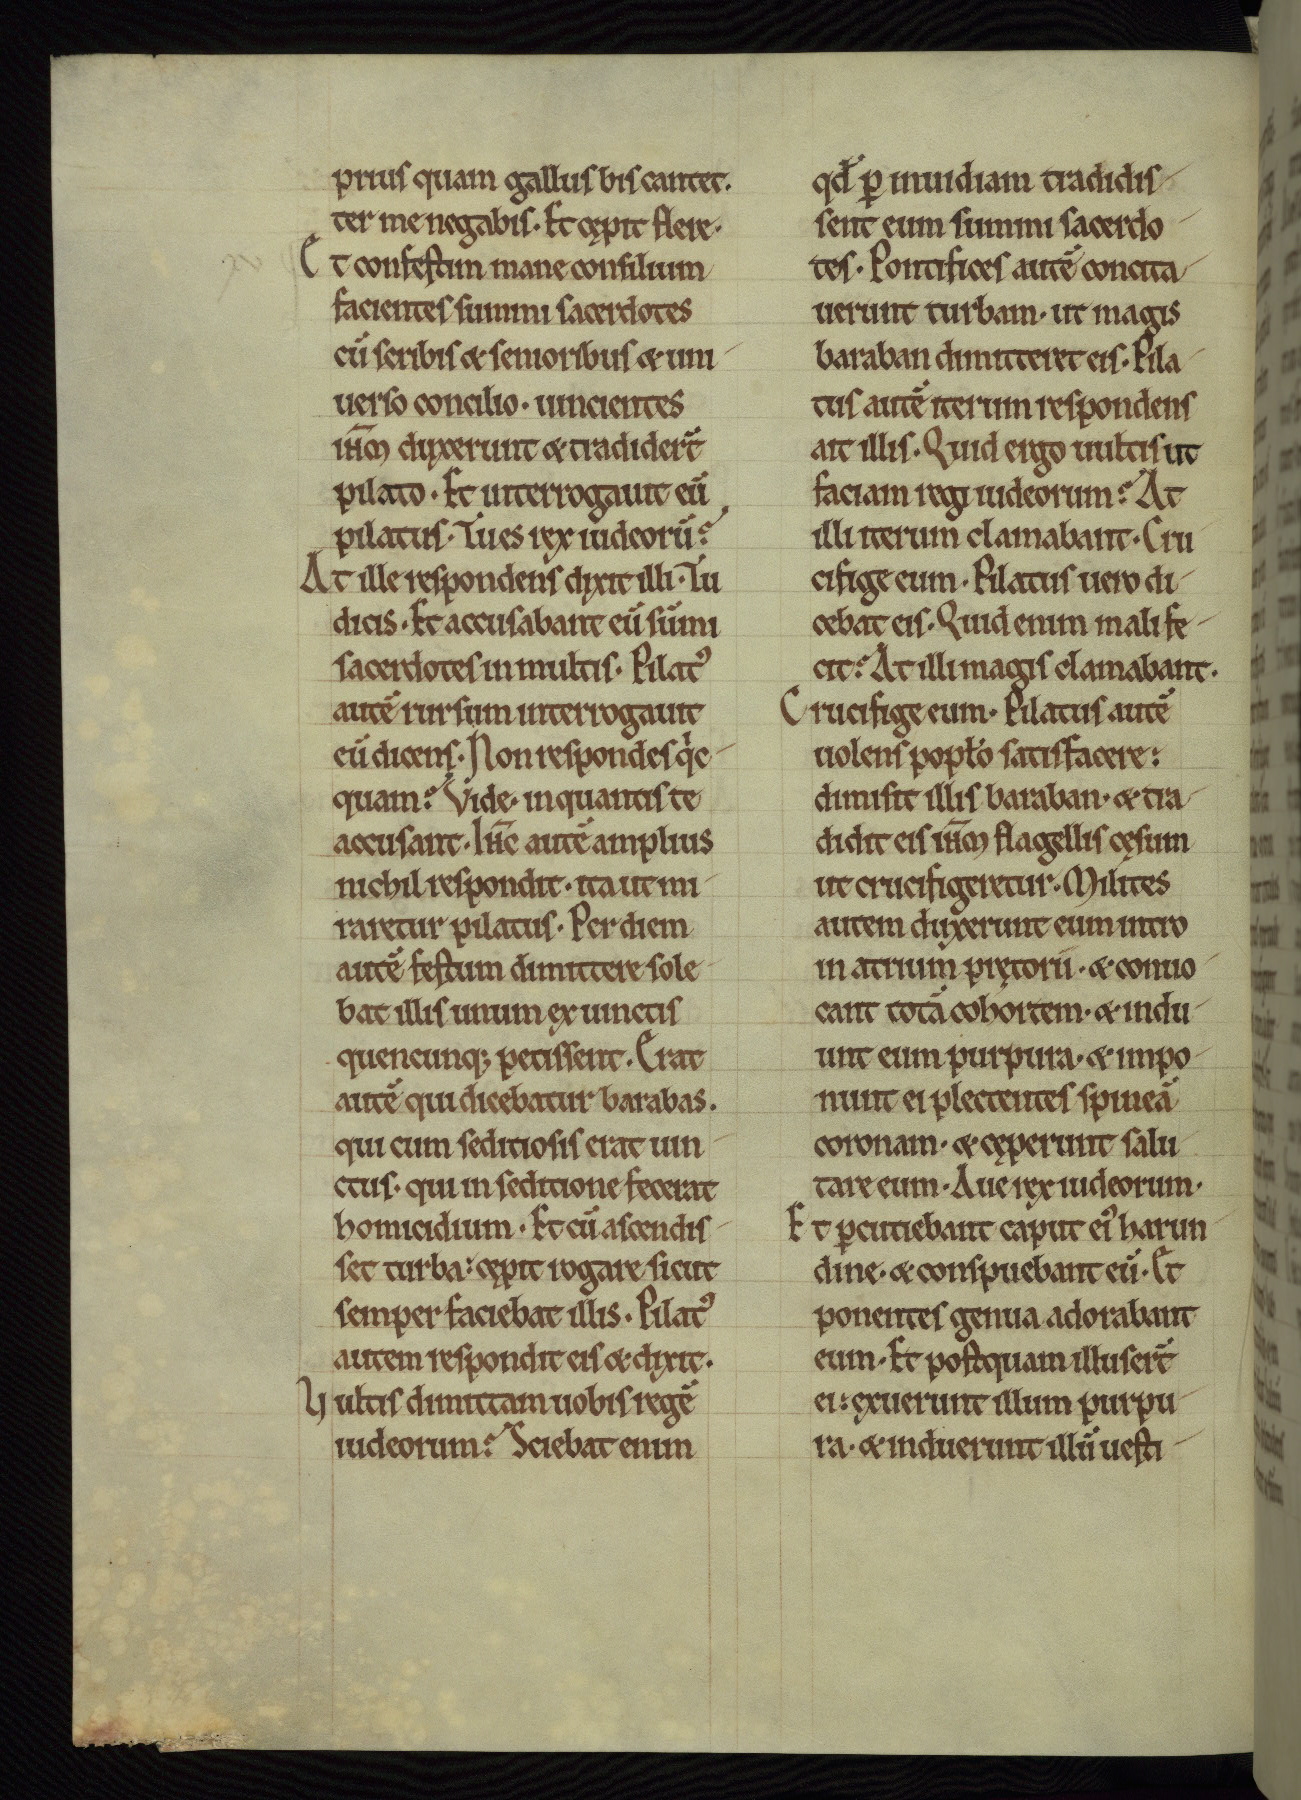 prius quam gallus bis cantet.
ter me negabis. Et cępit flere.
Et confestim mane consilium
facientes summi sacerdotes
cū scribis & senioribus & uni
uerso concilio. uincientes
ihm̄ duxerunt & tradider̄t
pilato. Et interrogauit eū
pilatus. Tu es rex iudeorū?
At ille respondens dixit illi. Tu
dicis. Et accusabant eū sūmi
sacerdotes in multis. Pilatꝰ
autē rursum interrogauit
eū dicens. Non respondes qͥc
quam? Vide. in quantis te
accusant. Ihc̄ autē amplius
nichil respondit. ita ut mi
raretur pilatus. Per diem
autē festum dimittere sole
bat illis unum ex uinctis
quencunq; petissent. Erat
autē qui dicebatur barabas.
qui cum seditiosis erat uin
ctus. qui in seditione fecerat
homicidium. Et cū ascendis
set turba: cępit rogare sicut
semper faciebat illis. Pilatꝰ
autem respondit eis & dixit.
Uultis dimittam uobis regē
iudeorum? Sciebat enim
qd̄ ꝑ inuidiam tradidis
sent eum summi sacerdo
tes. Pontifices autē concita
uerunt turbam. ut magis
baraban dimitteret eis. Pila
tus autē iterum respondens
ait illis. Quid ergo uultis ut
faciam regi iudeorum? At
illi iterum clamabant. Cru
cifige eum. Pilatus uero di
cebat eis. Quid enim mali fe
cit? At illi magis clamabant.
Crucifige eum. Pilatus autē
uolens popl̄o satisfacere:
dimisit illis baraban. & tra
didit eis ihm̄ flagellis cęsum
ut crucifigeretur. Milites
autem duxerunt eum intro
in atrium prętorii. & conuo
cant totā cohortem. & indu
unt eum purpura. & impo
nunt ei plectentes spineā
coronam. & cęperunt salu
tare eum. Aue rex iudeorum.
Et ꝑcutiebant caput eiꝰ harun
dine. & conspuebant eū. Et
ponentes genua adorabant
eum. Et postquam illuser̄t
ei: exuerunt illum purpu
ra. & induerunt illū uesti